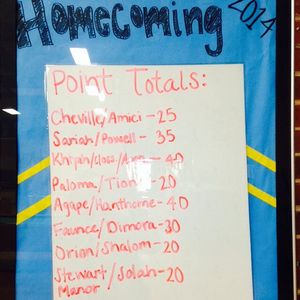 Homecoming
2014
Point Totals:
Cheville/Amici - 25
Sariah/Powell - 35
40
Paloma/Tion - 20
Agape/Hawthorne - 40
Faunce/Dimora - 30
Orion/Shalom - 20
Stewart/Selah - 20
Manor